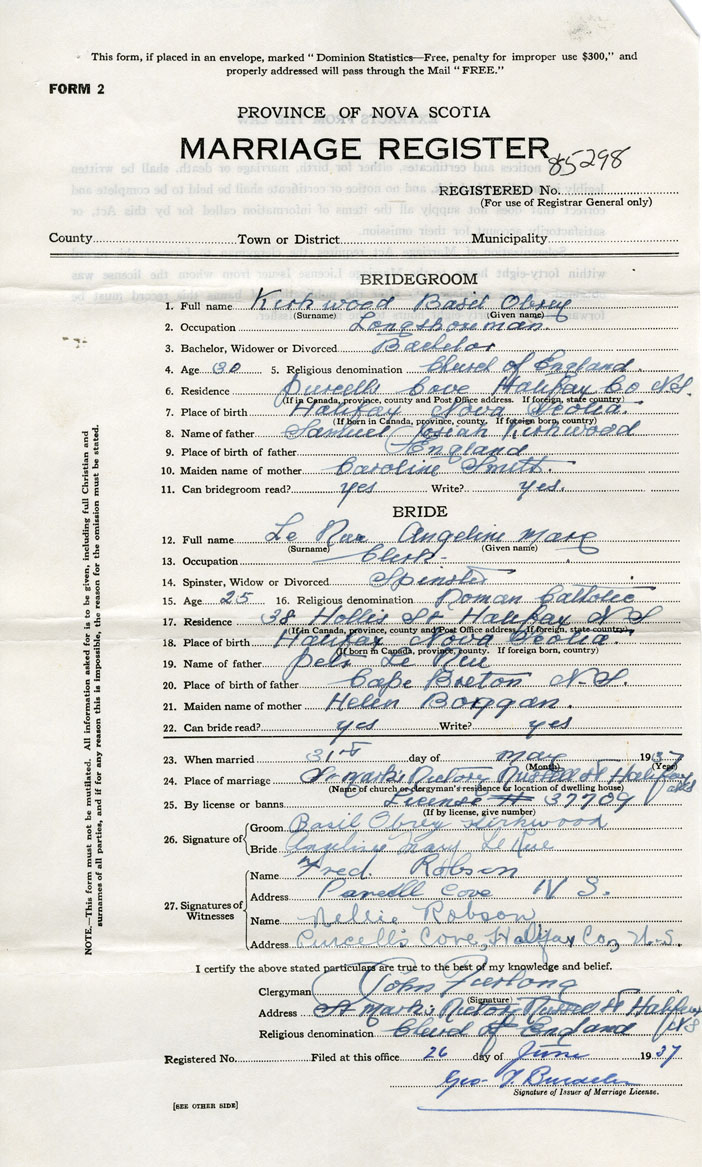 This form, if placed in an envelope, marked "Dominion Statistics—Free, penalty for improper use $300," and
properly addressed will pass through the Mail "FREE."
FORM 2
PROVINCE OF NOVA SCOTIA
MARRIAGE REGISTER
85298
REGISTERED No.
(For use of Registrar General only)
County Town or District Municipality
BRIDEGROOM
1. Full name Kirkwood Basil Obrey
(Surname) (Given name)
2. Occupation Longshoreman
3. Bachelor, Widower or Divorced Bachelor
4. Age 30 5. Religious denomination Church of England
6. Residence Purcells Cove Halifax Co N.S.
(If in Canada, province, county and Post Office address. If foreign, state country)
7. Place of birth Halifax Nova Scotia.
(If born in Canada, province, county. If foreign born, country)
8. Name of father Samuel Josiah Kirkwood
9. Place of birth of father England
10. Maiden name of mother Caroline Smith
11. Can bridegroom read? yes Write? yes.
BRIDE
12. Full name Le Rue Angeline Mary
(Surname) (Given name)
13. Occupation Clerk
14. Spinster, Widow or Divorced Spinster
15. Age 25 16. Religious denomination Roman Catholic
17. Residence 38 Hollis St. Halifax N S
(If in Canada, province, county and Post Office address. If foreign, state country)
18. Place of birth Halifax Nova Scotia
(If born in Canada, province, county. If foreign born, country)
19. Name of father Le Rue
20. Place of birth of father Cape Breton N.S.
21. Maiden name of mother Helen
22. Can bride read? yes Write? yes
23. When married 31st day of May 1937
(Month) (Year)
24. Place of marriage St Mark's Rectory Russell St Halifax NS
(Name of church or clergyman's residence or location of dwelling house)
25. By license or banns License # 37709
(If by license, give number)
26. Signature of Groom Basil Obrey Kirkwood
Bride Angeline Mary Le Rue
27. Signatures of Witnesses Name Fred. Robson
Address Purcell Cove N S.
Name Nellie Robson
Address Purcell's Cove, Halifax Co, N.S.
I certify the above stated particulars are true to the best of my knowledge and belief.
Clergyman John Furlong
(Signature)
Address St Mark's Rectory Russell St Halifax NS
Religious denomination Church of England
Registered No. Filed at this office 26 day of June 1937
Geo.
Signature of Issuer of Marriage License.
[SEE OTHER SIDE]
NOTE.—This form must not be mutilated. All information asked for is to be given, including full Christian and
surnames of all parties, and if for any reason this is impossible, the reason for the omission must be stated.